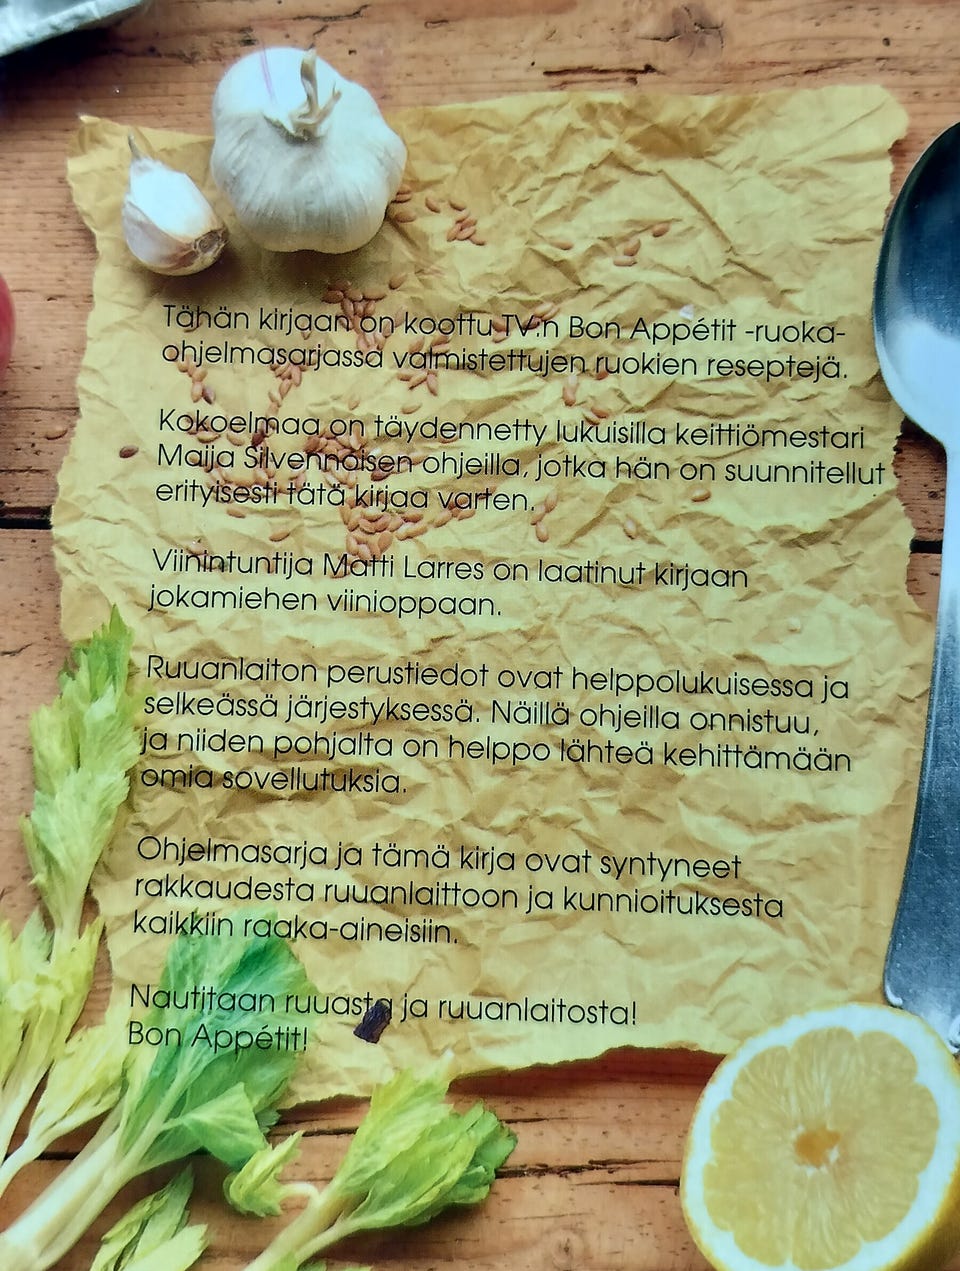 Tähän kirjaan on koottu TV:n Bon Appétit -ruoka-
ohjelmasarjassa valmistettujen ruokien reseptejä.
Kokoelmaa on täydennetty lukuisilla keittiömestari
Maija Silvennoisen ohjeilla, jotka hän on suunnitellut
erityisesti tätä kirjaa varten.
Viinintuntija Matti Larres on laatinut kirjaan
jokamiehen viinioppaan.
Ruuanlaiton perustiedot ovat helppolukuisessa ja
selkeässä järjestyksessä. Näillä ohjeilla onnistuu,
ja niiden pohjalta on helppo lähteä kehittämään
omia sovellutuksia.
Ohjelmasarja ja tämä kirja ovat syntyneet
rakkaudesta ruuanlaittoon ja kunnioituksesta
kaikkiin raaka-aineisiin.
Nautitaan ruuasta ja ruuanlaitosta!
Bon Appétit!